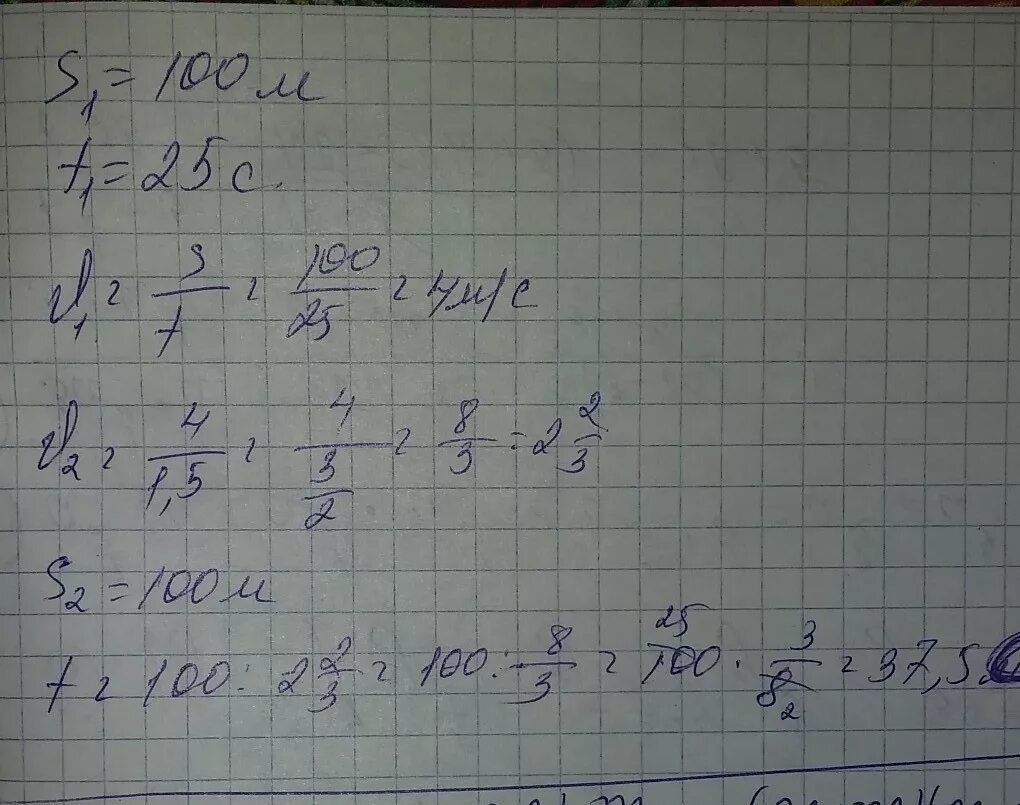 S₁ = 100 м
t₁ = 25 с.
v₁ = s/t = 100/25 = 4 м/с
v₂ = 4/1,5 = 4/(3/2) = 8/3 = 2 2/3
S₂ = 100 м
t = 100 : 2 2/3 = 100 : 8/3 = 25 100 · 3/8 2 = 37,5